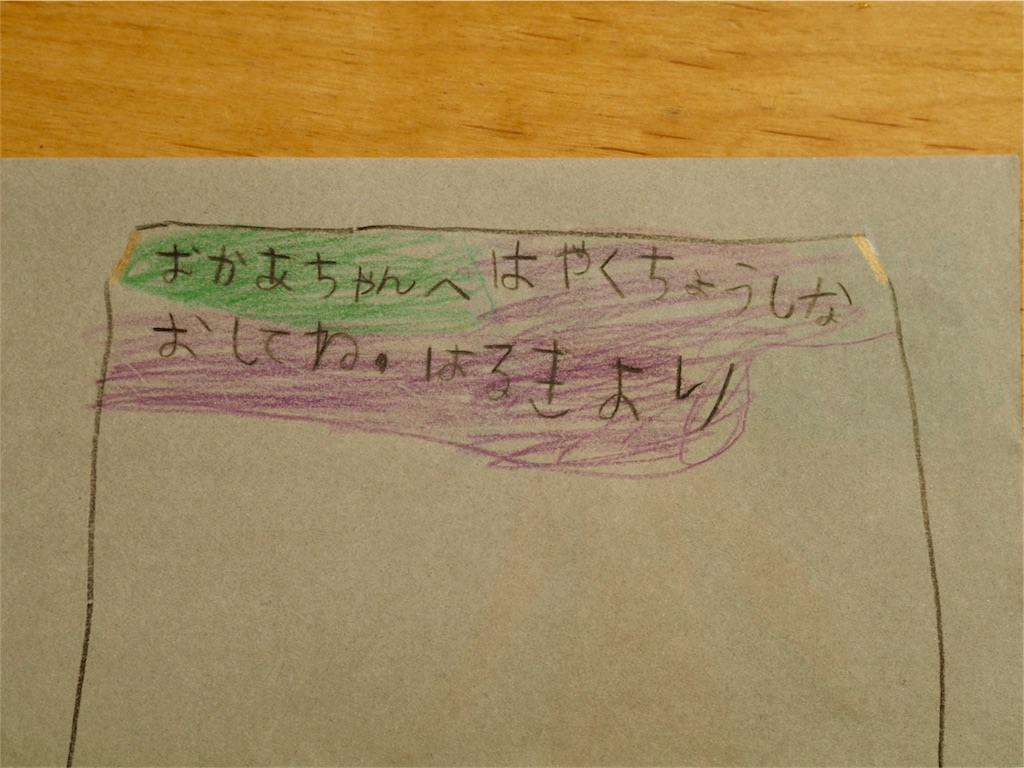 おかあちゃんへはやくちょうしな
おしてね。はるきより